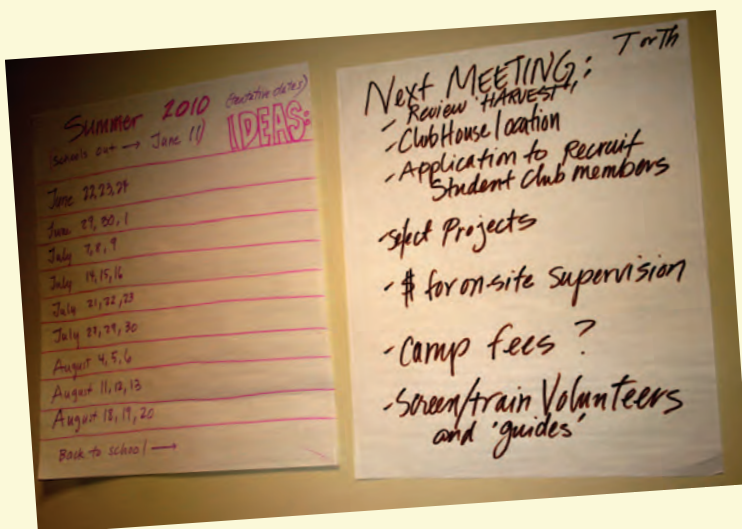 Summer 2010 (tentative dates)
IDEAS:
(schools out → June 11)
June 22,23,24
June 29, 30, 1
July 7, 8, 9
July 14, 15, 16
July 21, 22, 23
July 28, 29, 30
August 4, 5, 6
August 11, 12, 13
August 18, 19, 20
Back to school →
T or Th
Next MEETING:
- Review 'HARVEST'
- ClubHouse location
- Application to Recruit
Student Club members
- select Projects
- $ for on-site Supervision
- Camp fees ?
- Screen/train Volunteers
and 'guides'